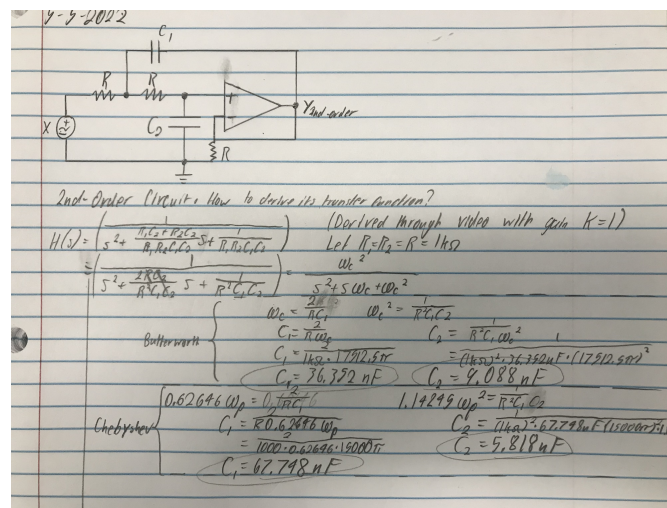 4-4-2022
C₁
R R
X C₂ + - Y2nd-order
R
2nd-Order Circuit: How to derive its transfer function?
H(s) = (1 / (s² + (R₁C₂+R₂C₂)/(R₁R₂C₁C₂) s + 1/(R₁R₂C₁C₂))) (Derived through video with gain K=1)
Let R₁=R₂=R=1kΩ
= (1 / (s² + 2RC₂/(R²C₁C₂) s + 1/(R²C₁C₂))) = ωc² / (s² + sωc + ωc²)
Butterworth
ωc = 2/(RC₁) ωc² = 1/(R²C₁C₂)
C₁ = 2/(Rωc) C₂ = 1/(R²C₁ωc²)
C₁ = 2/(1kΩ·17512.5π) = 1/((1kΩ)²·36.352nF·(17512.5π)²)
C₁ = 36.352 nF C₂ = 9.088 nF
Chebyshev
0.62646 ωp = 2/(RC₁) 1.14245 ωp² = 1/(R²C₁C₂)
C₁ = 2/(R 0.62646 ωp) C₂ = 1/((1kΩ)²·67.748nF(15000π)²
= 2/(1000·0.62646·15000π) C₂ = 5.818nF
C₁ = 67.748 nF